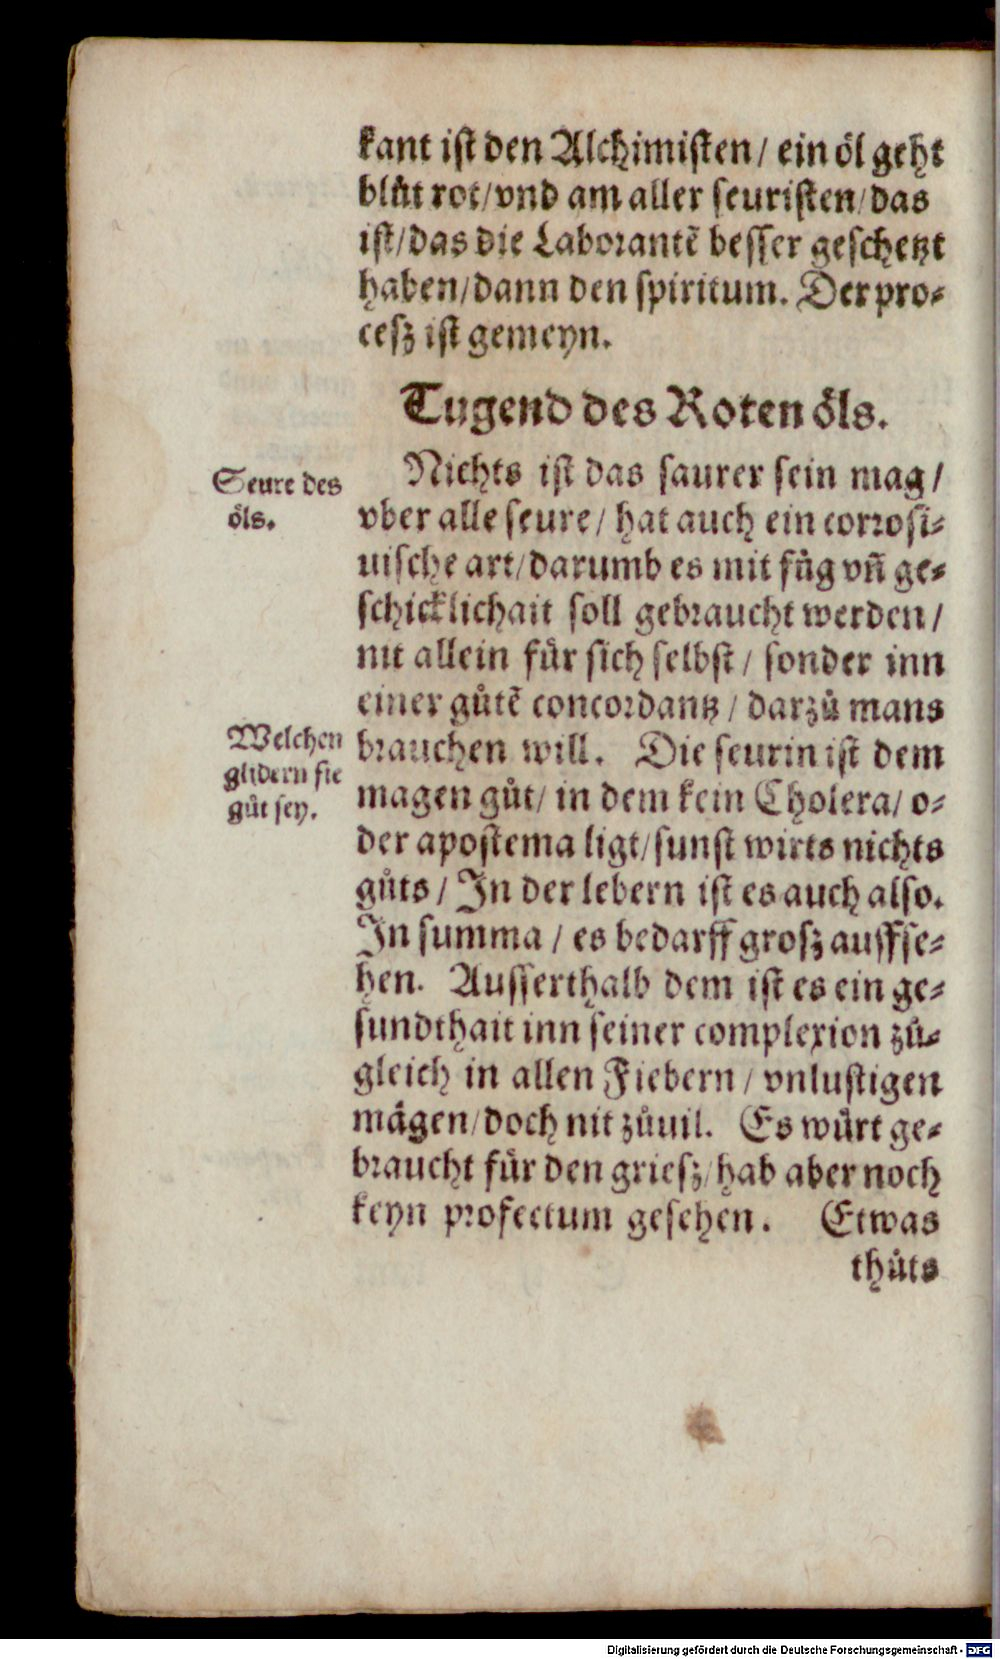 kant ist den Alchimisten / ein öl geht
blůt rot / vnd am aller seuristen / das
ist / das die Laborantē besser geschetzt
haben / dann den spiritum. Der pro⸗
cesz ist gemeyn.
Tugend des Roten öls.
Nichts ist das saurer sein mag /
Seure des
öls.
vber alle seure / hat auch ein corrosi⸗
uische art / darumb es mit fůg vñ ge⸗
schicklichait soll gebraucht werden /
nit allein für sich selbst / sonder inn
einer gůtē concordantz / darzů mans
Welchen
glidern sie
gůt sey.
brauchen will. Die seurin ist dem
magen gůt / in dem kein Cholera / o⸗
der apostema ligt / sunst wirts nichts
gůts / In der lebern ist es auch also.
In summa / es bedarff grosz auffse⸗
hen. Ausserthalb dem ist es ein ge⸗
sundthait inn seiner complexion zů⸗
gleich in allen Fiebern / vnlustigen
mägen / doch nit zůuil. Es würt ge⸗
braucht für den griesz / hab aber noch
keyn profectum gesehen. Etwas
thůts
Digitalisierung gefördert durch die Deutsche Forschungsgemeinschaft - DFG